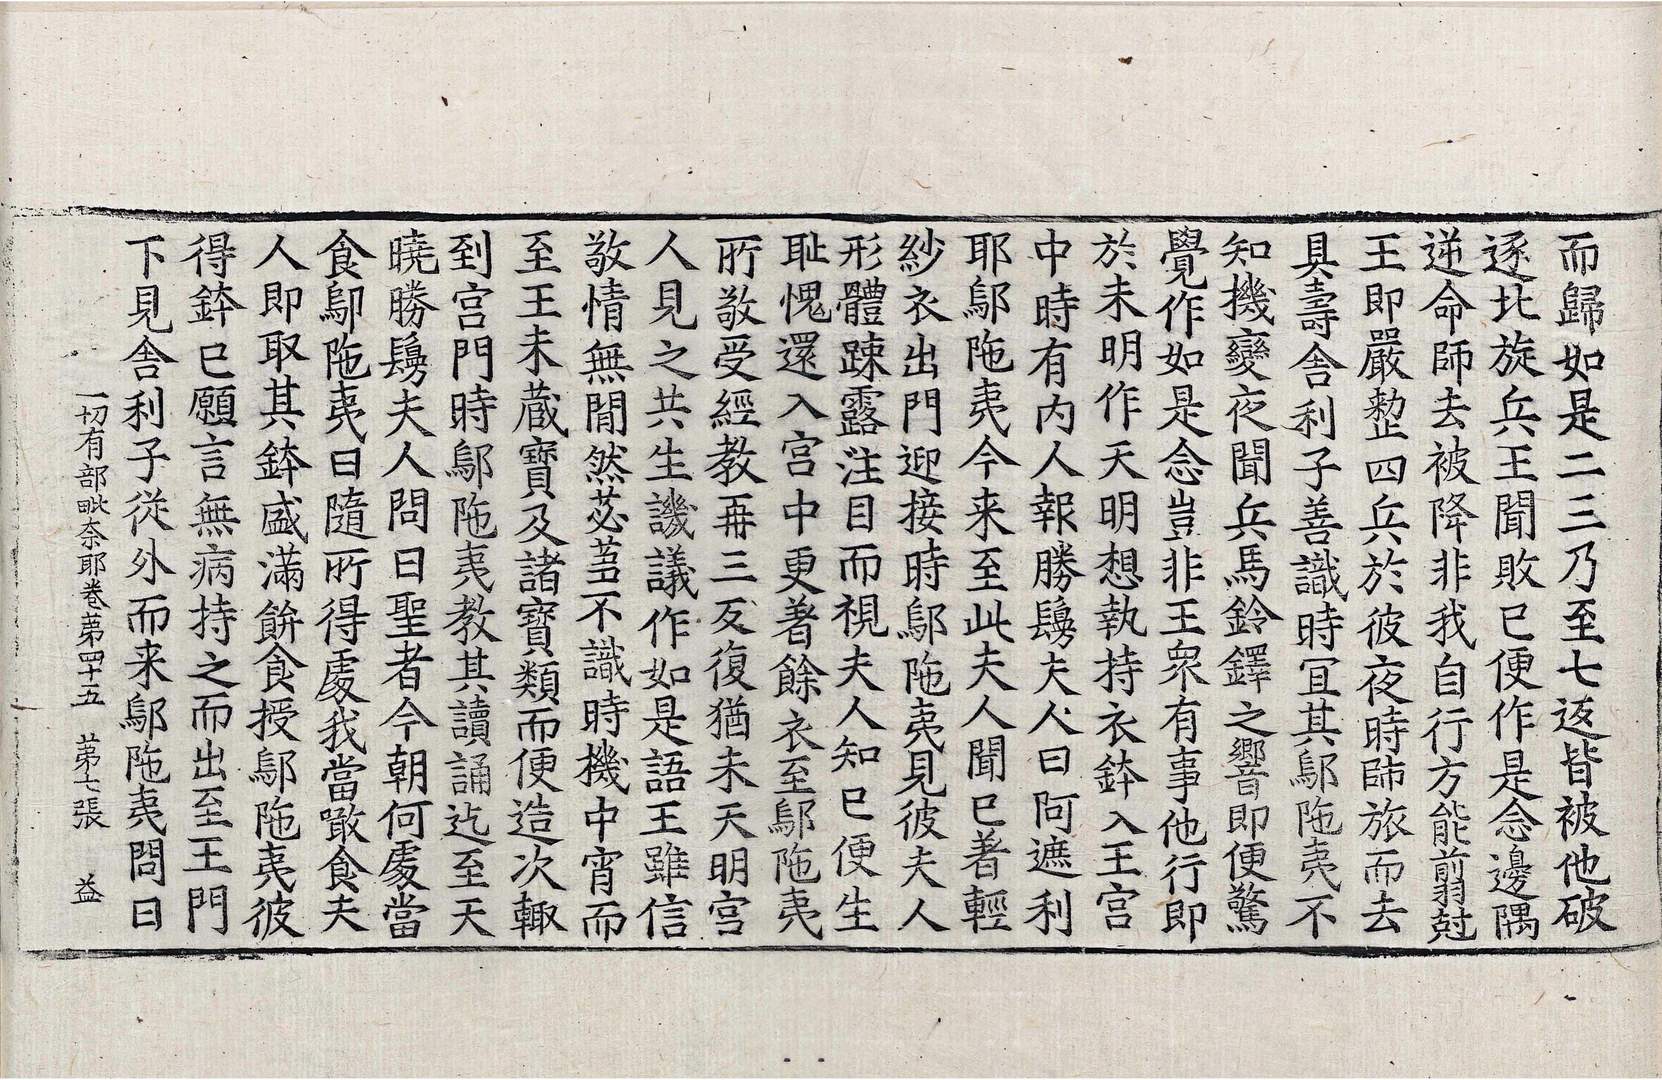 而歸如是二三乃至七返皆被他破
逐北旋兵王聞敗已便作是念邊隅
逆命師去被降非我自行方能剪尅
王即嚴整四兵於彼夜時師旅而去
具壽舍利子善識時宜其鄔陁夷不
知機變夜聞兵馬鈴鐸之響即便驚
覺作如是念豈非王衆有事他行即
於未明作天明想執持衣鉢入王宮
中時有内人報勝鬘夫人曰阿遮利
耶鄔陁夷今来至此夫人聞已著輕
紗衣出門迎接時鄔陁夷見彼夫人
形體踈露注目而視夫人知已便生
耻愧還入宮中更著餘衣至鄔陁夷
所敬受經教再三反復猶未天明宮
人見之共生譏議作如是語王雖信
敬情無閒然苾芻不識時機中宵而
至王未蔵寶及諸寶類而便造次輙
到宮門時鄔陁夷教其讀誦迄至天
曉勝鬘夫人問曰聖者今朝何處當
食鄔陁夷曰隨所得處我當噉食夫
人即取其鉢盛滿餅食授鄔陁夷彼
得鉢已願言無病持之而出至王門
下見舍利子從外而来鄔陁夷問曰
一切有部毗奈耶卷第四十五 第七張 益